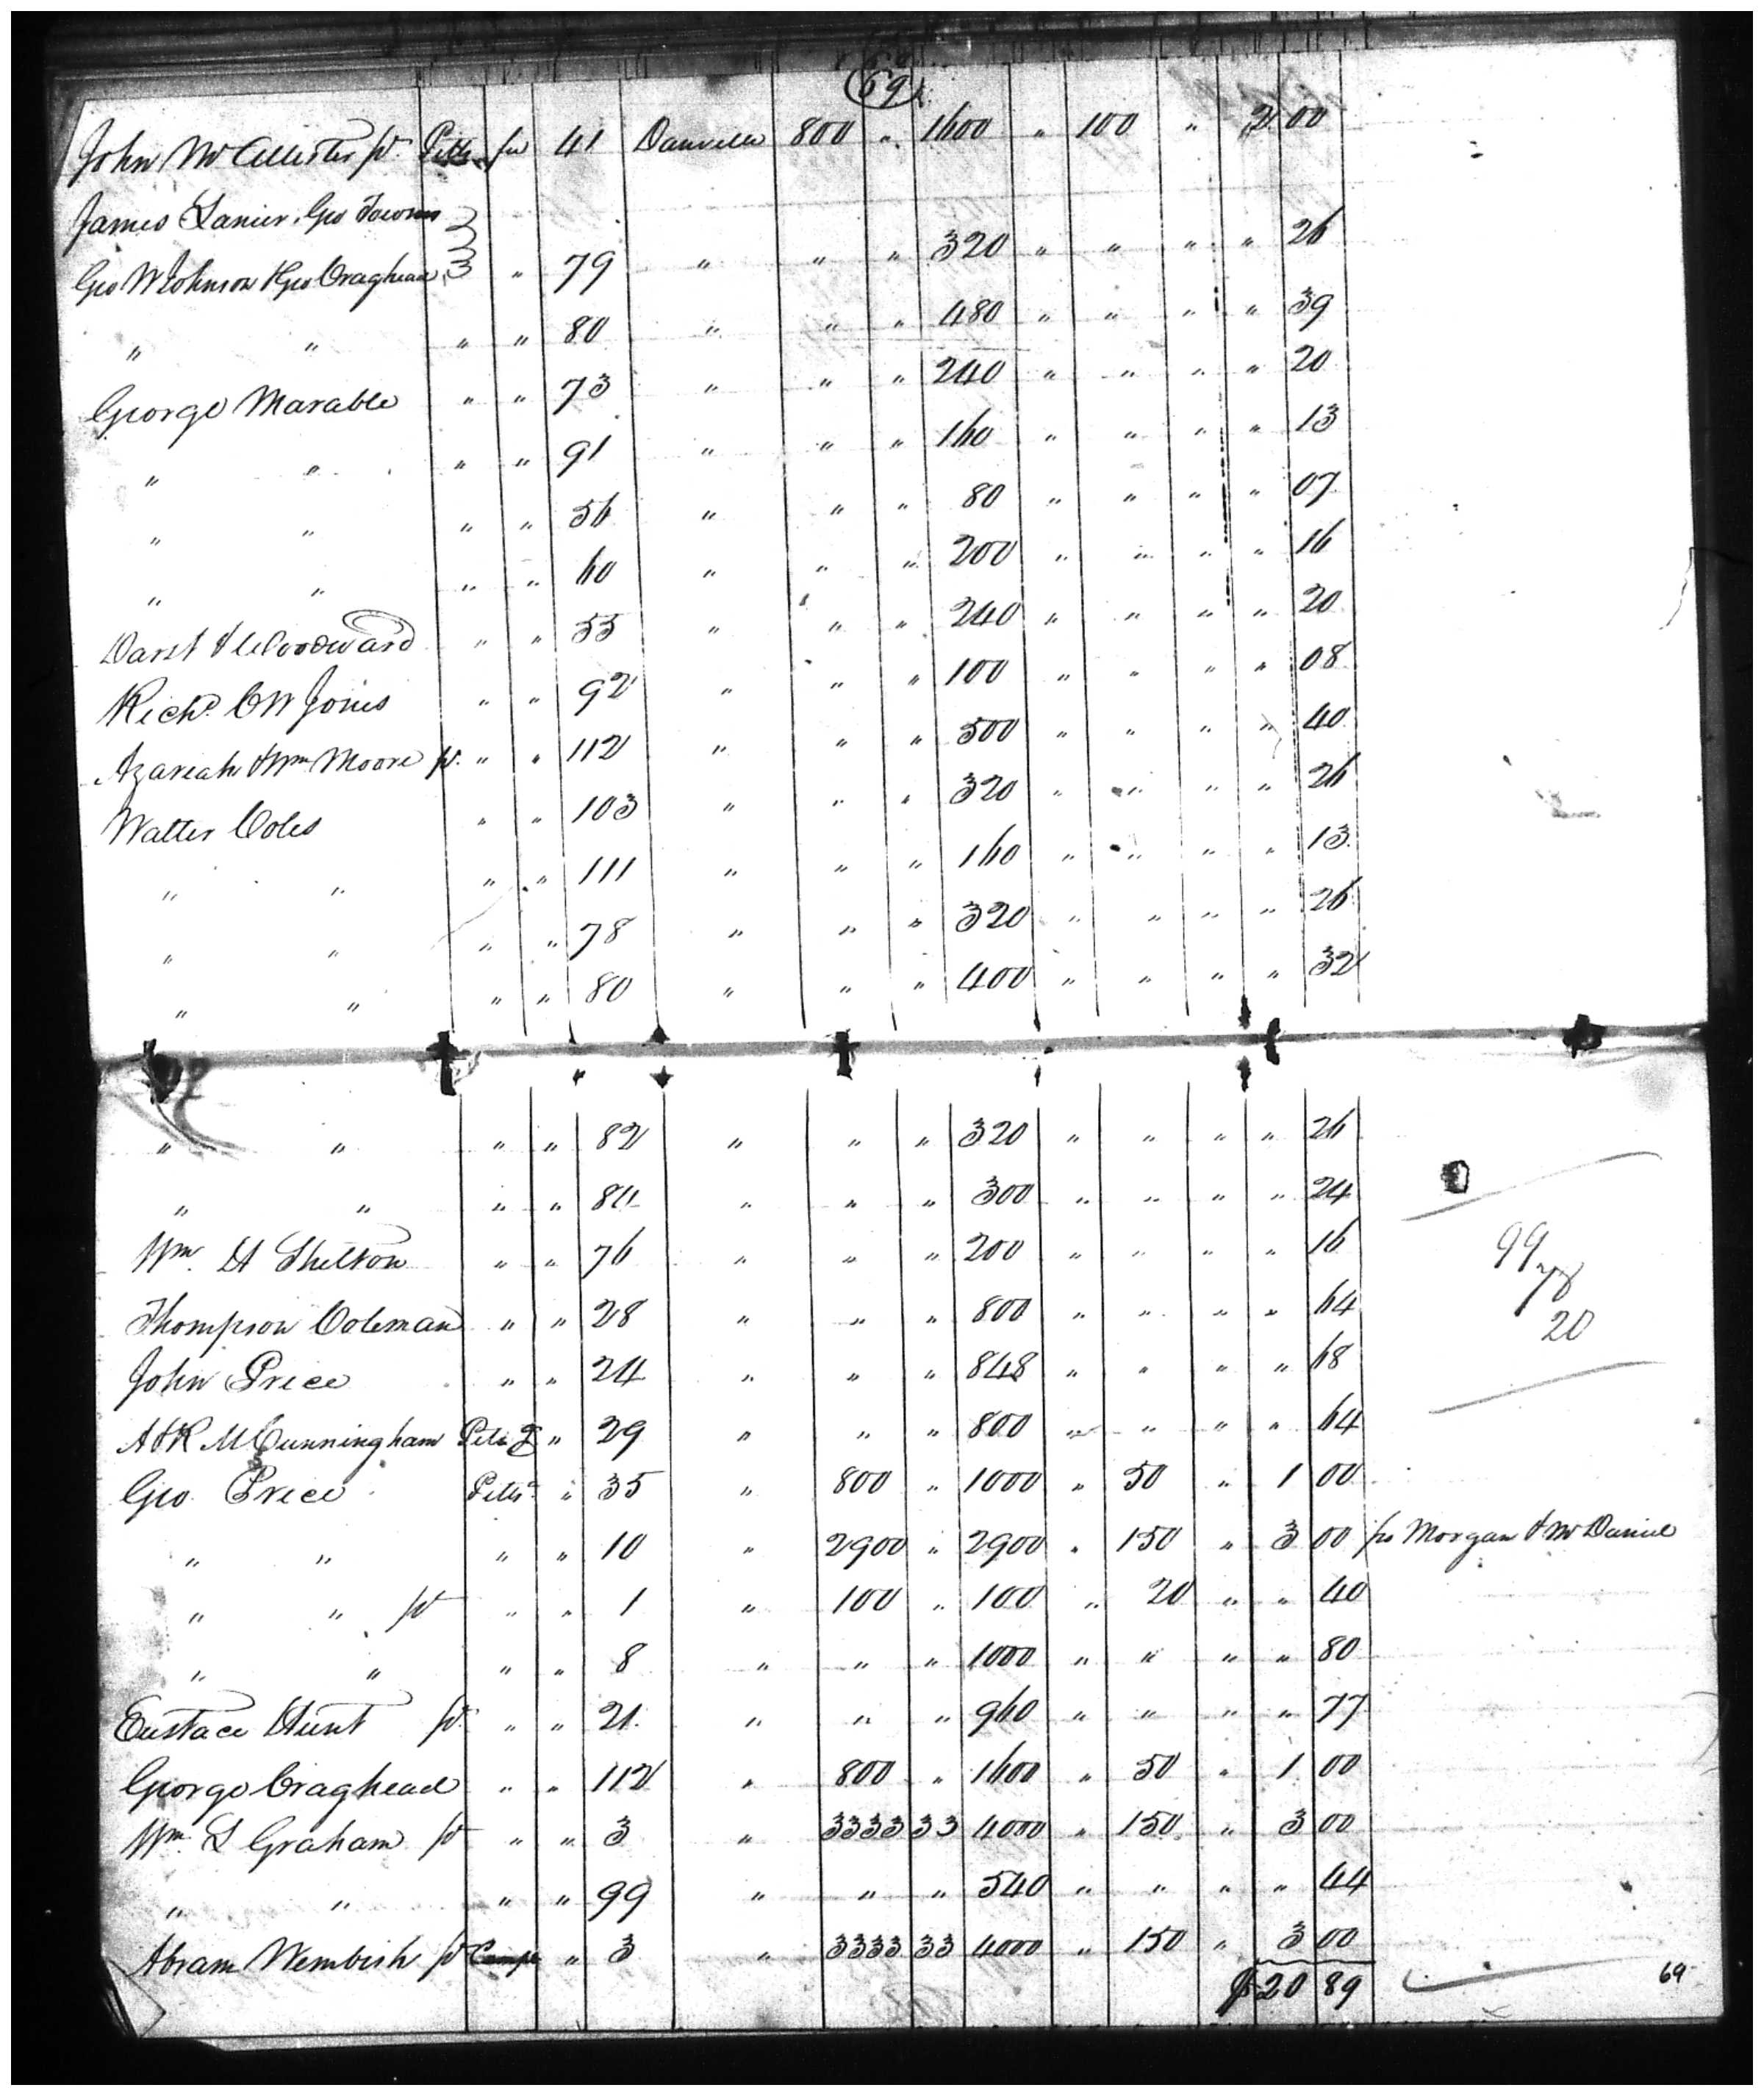 69
John McAllister pt. Pitts fee 41 Danville 800 " 1600 " 100 " 2 00
James Lanier, Geo Towns
Geo W Johnson & Geo Craghead 3 " 79 " " " 320 " " " " 26
" " " " 80 " " " 480 " " " " 39
George Marable " " 73 " " " 240 " " " " 20
" " " " 91 " " " 160 " " " " 13
" " " " 56 " " " 80 " " " " 07
" " " " 60 " " " 200 " " " " 16
Darst & Woodward " " 55 " " " 240 " " " " 20
Richd. C W Jones " " 92 " " " 100 " " " " 08
Azariah & Wm Moore pt. " " 112 " " " 500 " " " " 40
Walter Coles " " 103 " " " 320 " " " " 26
" " " " 111 " " " 160 " " " " 13
" " " " 78 " " " 320 " " " " 26
" " " " 80 " " " 400 " " " " 32
" " " " 82 " " " 320 " " " " 26
" " " " 84 " " " 300 " " " " 24
Wm. H Shelton " " 76 " " " 200 " " " " 16
99
78
20
Thompson Coleman " " 28 " " " 800 " " " " 64
John Price " " 24 " " " 848 " " " " 68
A & R M Cunningham Pitts " 29 " " " 800 " " " " 64
Geo Price Pitts " 35 " 800 " 1000 " 50 " 1 00
" " " " 10 " 2900 " 2900 " 150 " 3 00 pr Morgan & McDaniel
" " pt " " 1 " 100 " 100 " 20 " " 40
" " " " 8 " " " 1000 " " " " 80
Eustace Hunt pt. " " 21 " " " 960 " " " " 77
George Craghead " " 112 " 800 " 1600 " 50 " 1 00
Wm. L Graham pt " " 3 " 3333 33 4000 " 150 " 3 00
" " " " 99 " " " 540 " " " " 44
Abram Wembish pt Camp " 3 " 3333 33 4000 " 150 " 3 00
$20 89
69